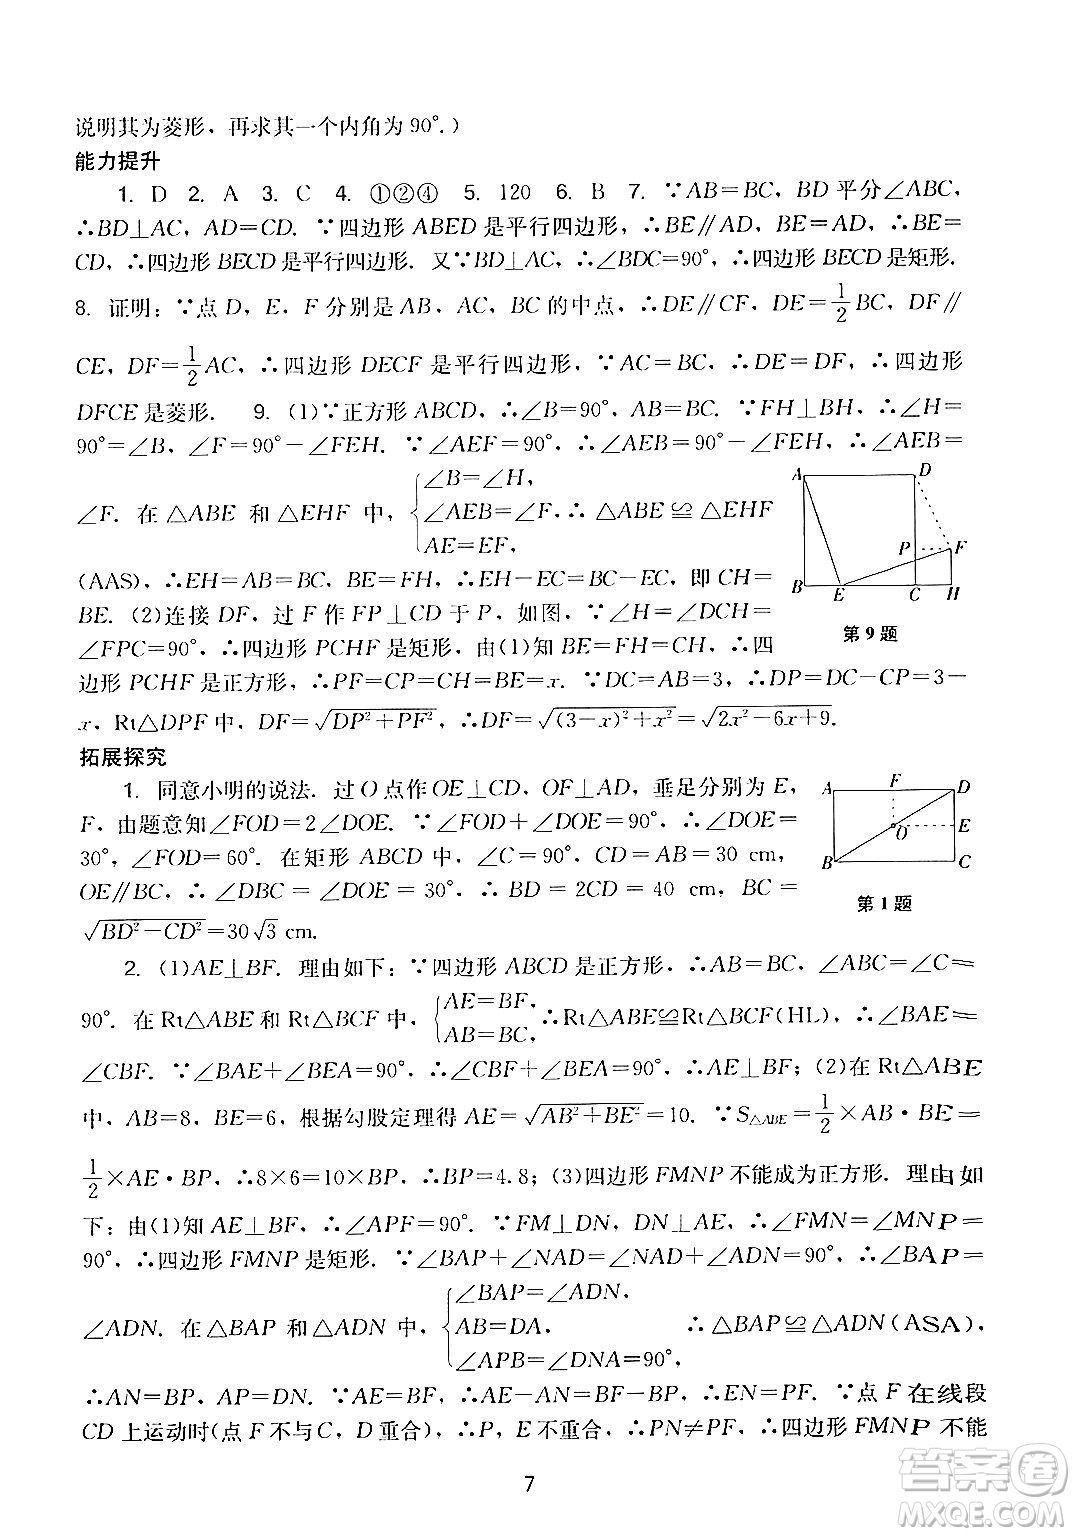 说明其为菱形，再求其一个内角为90°.）
能力提升
1. D 2. A 3. C 4. ①②④ 5. 120 6. B 7. ∵AB=BC，BD平分∠ABC，
∴BD⊥AC，AD=CD. ∵四边形ABED是平行四边形，∴BE∥AD，BE=AD，∴BE=
CD，∴四边形BECD是平行四边形. 又∵BD⊥AC，∴∠BDC=90°，∴四边形BECD是矩形.
8. 证明：∵点D，E，F分别是AB，AC，BC的中点，∴DE∥CF，DE=1/2BC，DF∥
CE，DF=1/2AC，∴四边形DECF是平行四边形. ∵AC=BC，∴DE=DF，∴四边形
DFCE是菱形. 9. (1)∵正方形ABCD，∴∠B=90°，AB=BC. ∵FH⊥BH，∴∠H=
90°=∠B，∠F=90°-∠FEH. ∵∠AEF=90°，∴∠AEB=90°-∠FEH，∴∠AEB=
∠F. 在△ABE和△EHF中，{∠B=∠H，∠AEB=∠F，AE=EF，∴△ABE≌△EHF
(AAS)，∴EH=AB=BC，BE=FH，∴EH-EC=BC-EC，即CH=
BE. (2)连接DF，过F作FP⊥CD于P，如图，∵∠H=∠DCH=
∠FPC=90°，∴四边形PCHF是矩形，由(1)知BE=FH=CH，∴四
边形PCHF是正方形，∴PF=CP=CH=BE=x. ∵DC=AB=3，∴DP=DC-CP=3-
x，Rt△DPF中，DF=√(DP²+PF²)，∴DF=√((3-x)²+x²)=√(2x²-6x+9).
A D P F B E C H
第9题
拓展探究
1. 同意小明的说法. 过O点作OE⊥CD，OF⊥AD，垂足分别为E，
F，由题意知∠FOD=2∠DOE. ∵∠FOD+∠DOE=90°，∴∠DOE=
30°，∠FOD=60°. 在矩形ABCD中，∠C=90°，CD=AB=30 cm，
OE∥BC，∴∠DBC=∠DOE=30°，∴BD=2CD=40 cm，BC=
√(BD²-CD²)=30√3 cm.
A F D O E B C
第1题
2. (1)AE⊥BF. 理由如下：∵四边形ABCD是正方形，∴AB=BC，∠ABC=∠C=
90°. 在Rt△ABE和Rt△BCF中，{AE=BF，AB=BC，∴Rt△ABE≌Rt△BCF(HL)，∴∠BAE=
∠CBF. ∵∠BAE+∠BEA=90°，∴∠CBF+∠BEA=90°，∴AE⊥BF；(2)在Rt△ABE
中，AB=8，BE=6，根据勾股定理得AE=√(AB²+BE²)=10. ∵S△ABE=1/2×AB·BE=
1/2×AE·BP，∴8×6=10×BP，∴BP=4.8；(3)四边形FMNP不能成为正方形. 理由如
下：由(1)知AE⊥BF，∴∠APF=90°. ∵FM⊥DN，DN⊥AE，∴∠FMN=∠MNP=
90°，∴四边形FMNP是矩形. ∵∠BAP+∠NAD=∠NAD+∠ADN=90°，∴∠BAP=
∠ADN. 在△BAP和△ADN中，{∠BAP=∠ADN，AB=DA，∠APB=∠DNA=90°，∴△BAP≌△ADN(ASA)，
∴AN=BP，AP=DN. ∵AE=BF，∴AE-AN=BF-BP，∴EN=PF. ∵点F在线段
CD上运动时(点F不与C，D重合)，∴P，E不重合，∴PN≠PF，∴四边形FMNP不能
7
答案卷
MXQE.COM